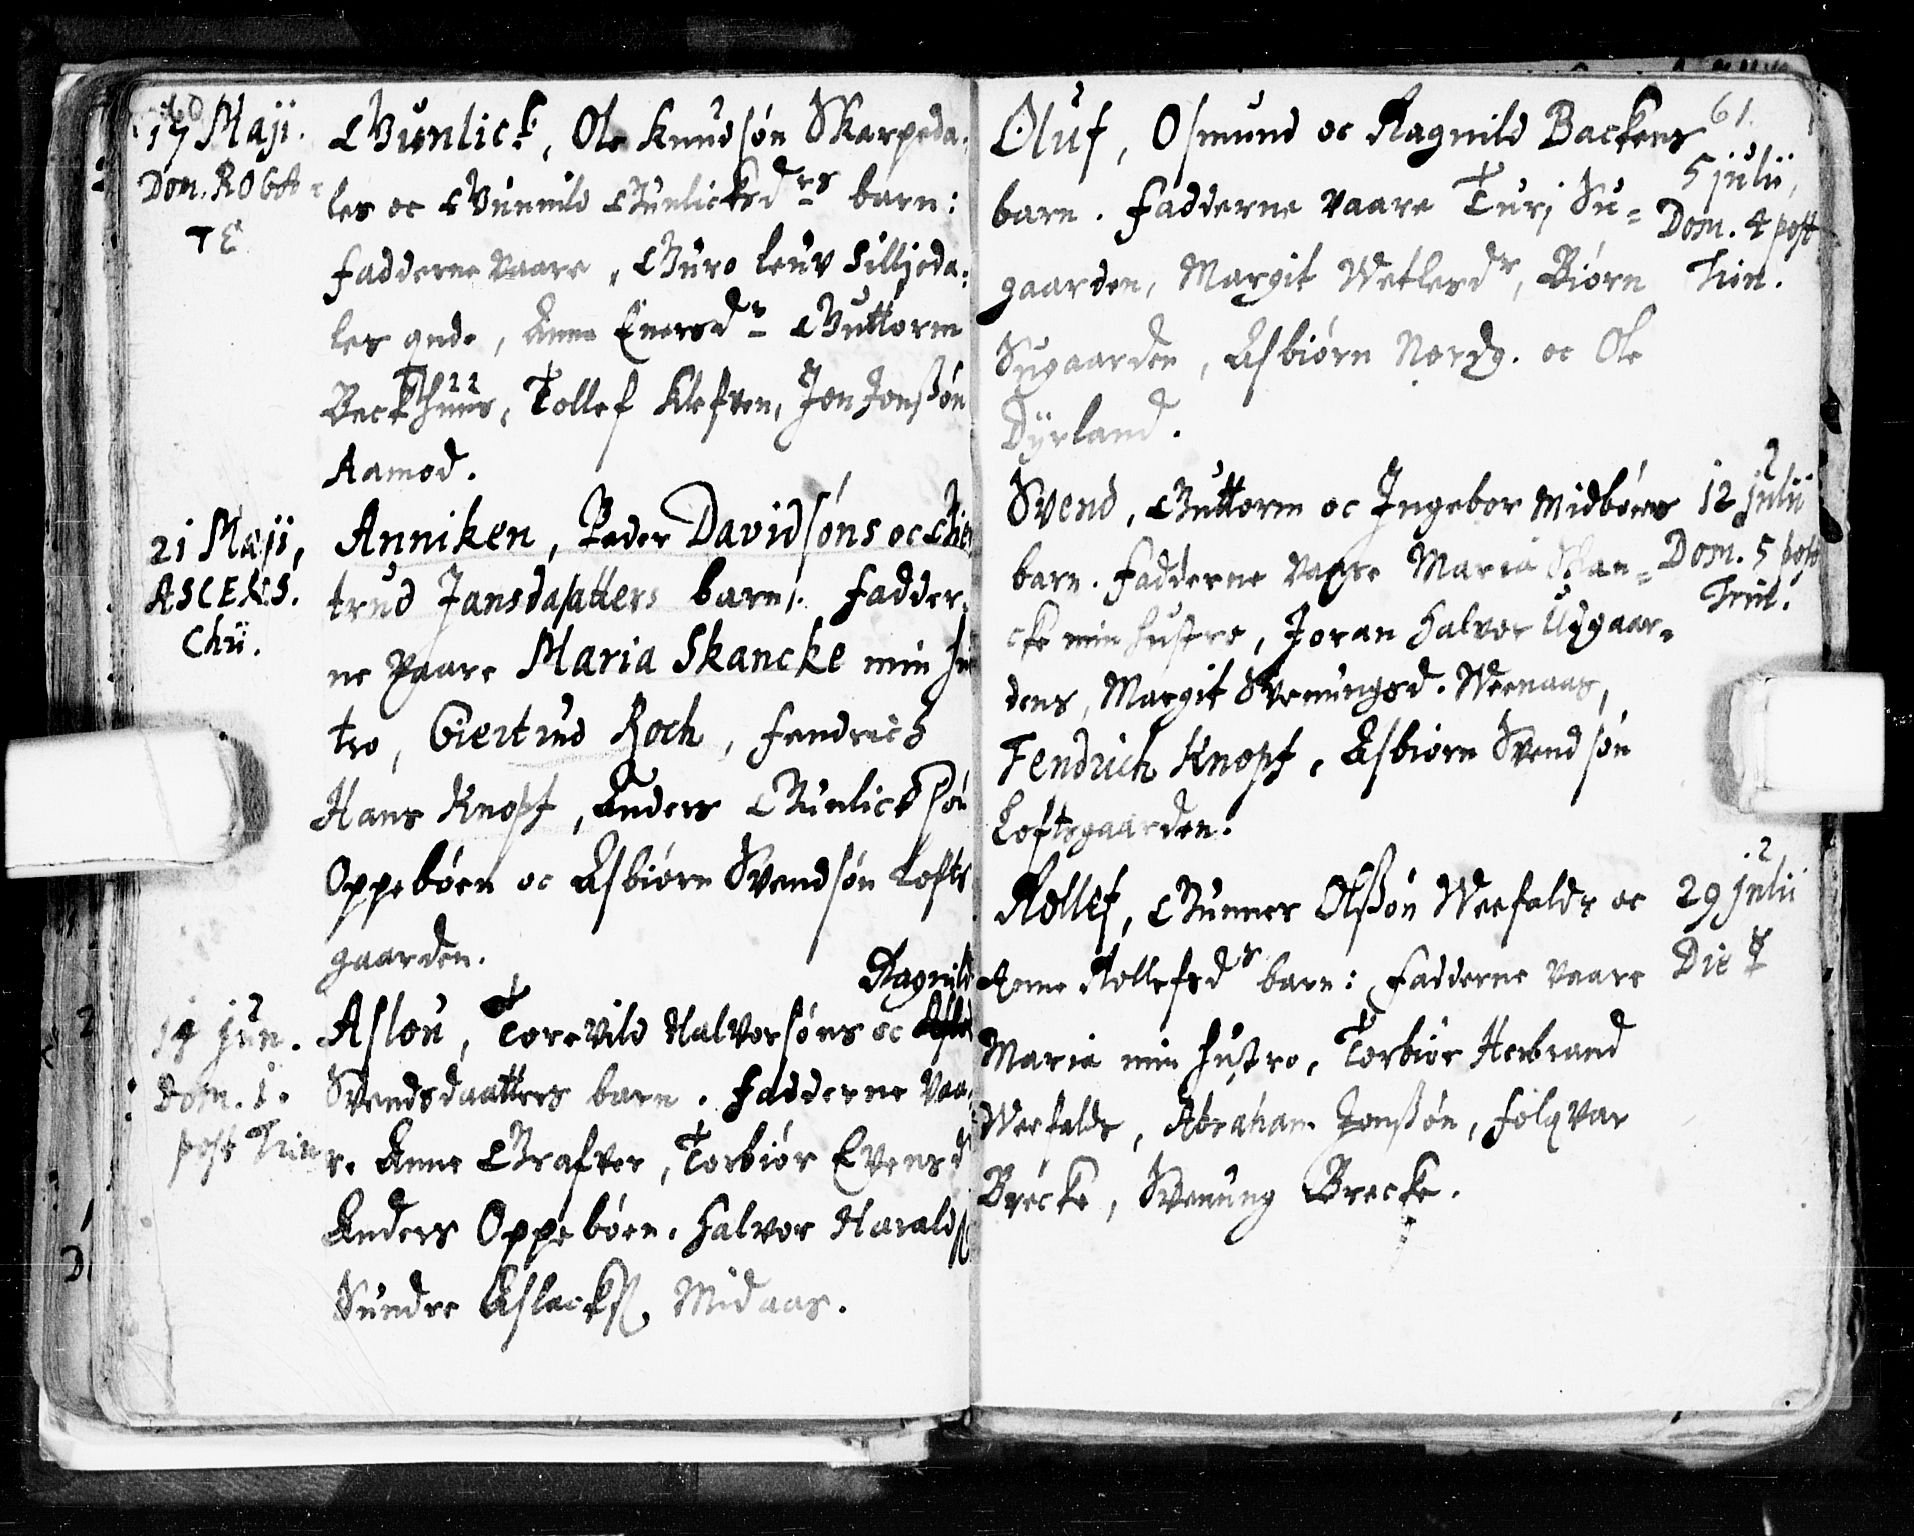 17 Maji.
Dom. Roga-
TE
Gunlick, Ole Knudsøn Skarpeda-
les oc Gunnild Gunlicksdrs barn:
fadderne vaare, Guro leuv Silljeda-
les gnde, Anne Enersdr Guttorm
Beckhuus, Tollef Klefven, Jon Jonssøn
Aamod.
21 Maji,
ASCENS.
Chri.
Anniken, Peder Davidsøns oc Gier
trud Jansdaatters barn. fadder-
ne vaare Maria Skancke min hu
tro, Giertrud Koch, fendrich
Hans Knopf, Anders Gunlicksøn
Oppebøen oc Asbiørn Svendsøn Lofts
gaarden.
14 Jun.
Dom. 1.
post Trin
Ragnild
Aslou, Torevild Halvorsøns oc
Svendsdaatters barn. fadderne vaa-
re Anne Grafver, Torbiør Evensd
Anders Oppebøen, Halvor Haralds
Sundre Aslacks. Midaas.
61.
Oluf, Osmund oc Ragnild Backens
barn. fadderne vaare Turi Su-
gaarden, Margit Wetlesdr, Biørn
Sugaarden, Asbiørn Nordg. oc Ole
Dyrland.
5 julii,
Dom. 4 post
Trin.
Svend, Guttorm oc Ingebor Midbøes
barn. fadderne vaare Maria Skan-
cke min hustro, Joran Halvor Uygaar-
dens, Margit Svenungsd. Weenaas,
Fendrich Knopf, Asbiørn Svendsøn
Loftsgaarden.
12 julii
Dom. 5 post
Trin.
Rollef, Gunner Olssøn Weefalds oc
Anne Rollefsdr barn: fadderne vaare
Maria min hustro, Torbiør Herbrand
Weefalds, Abraham Jonssøn, folqvar
Brecke, Svenung Brecke.
29 julii
Die ☿